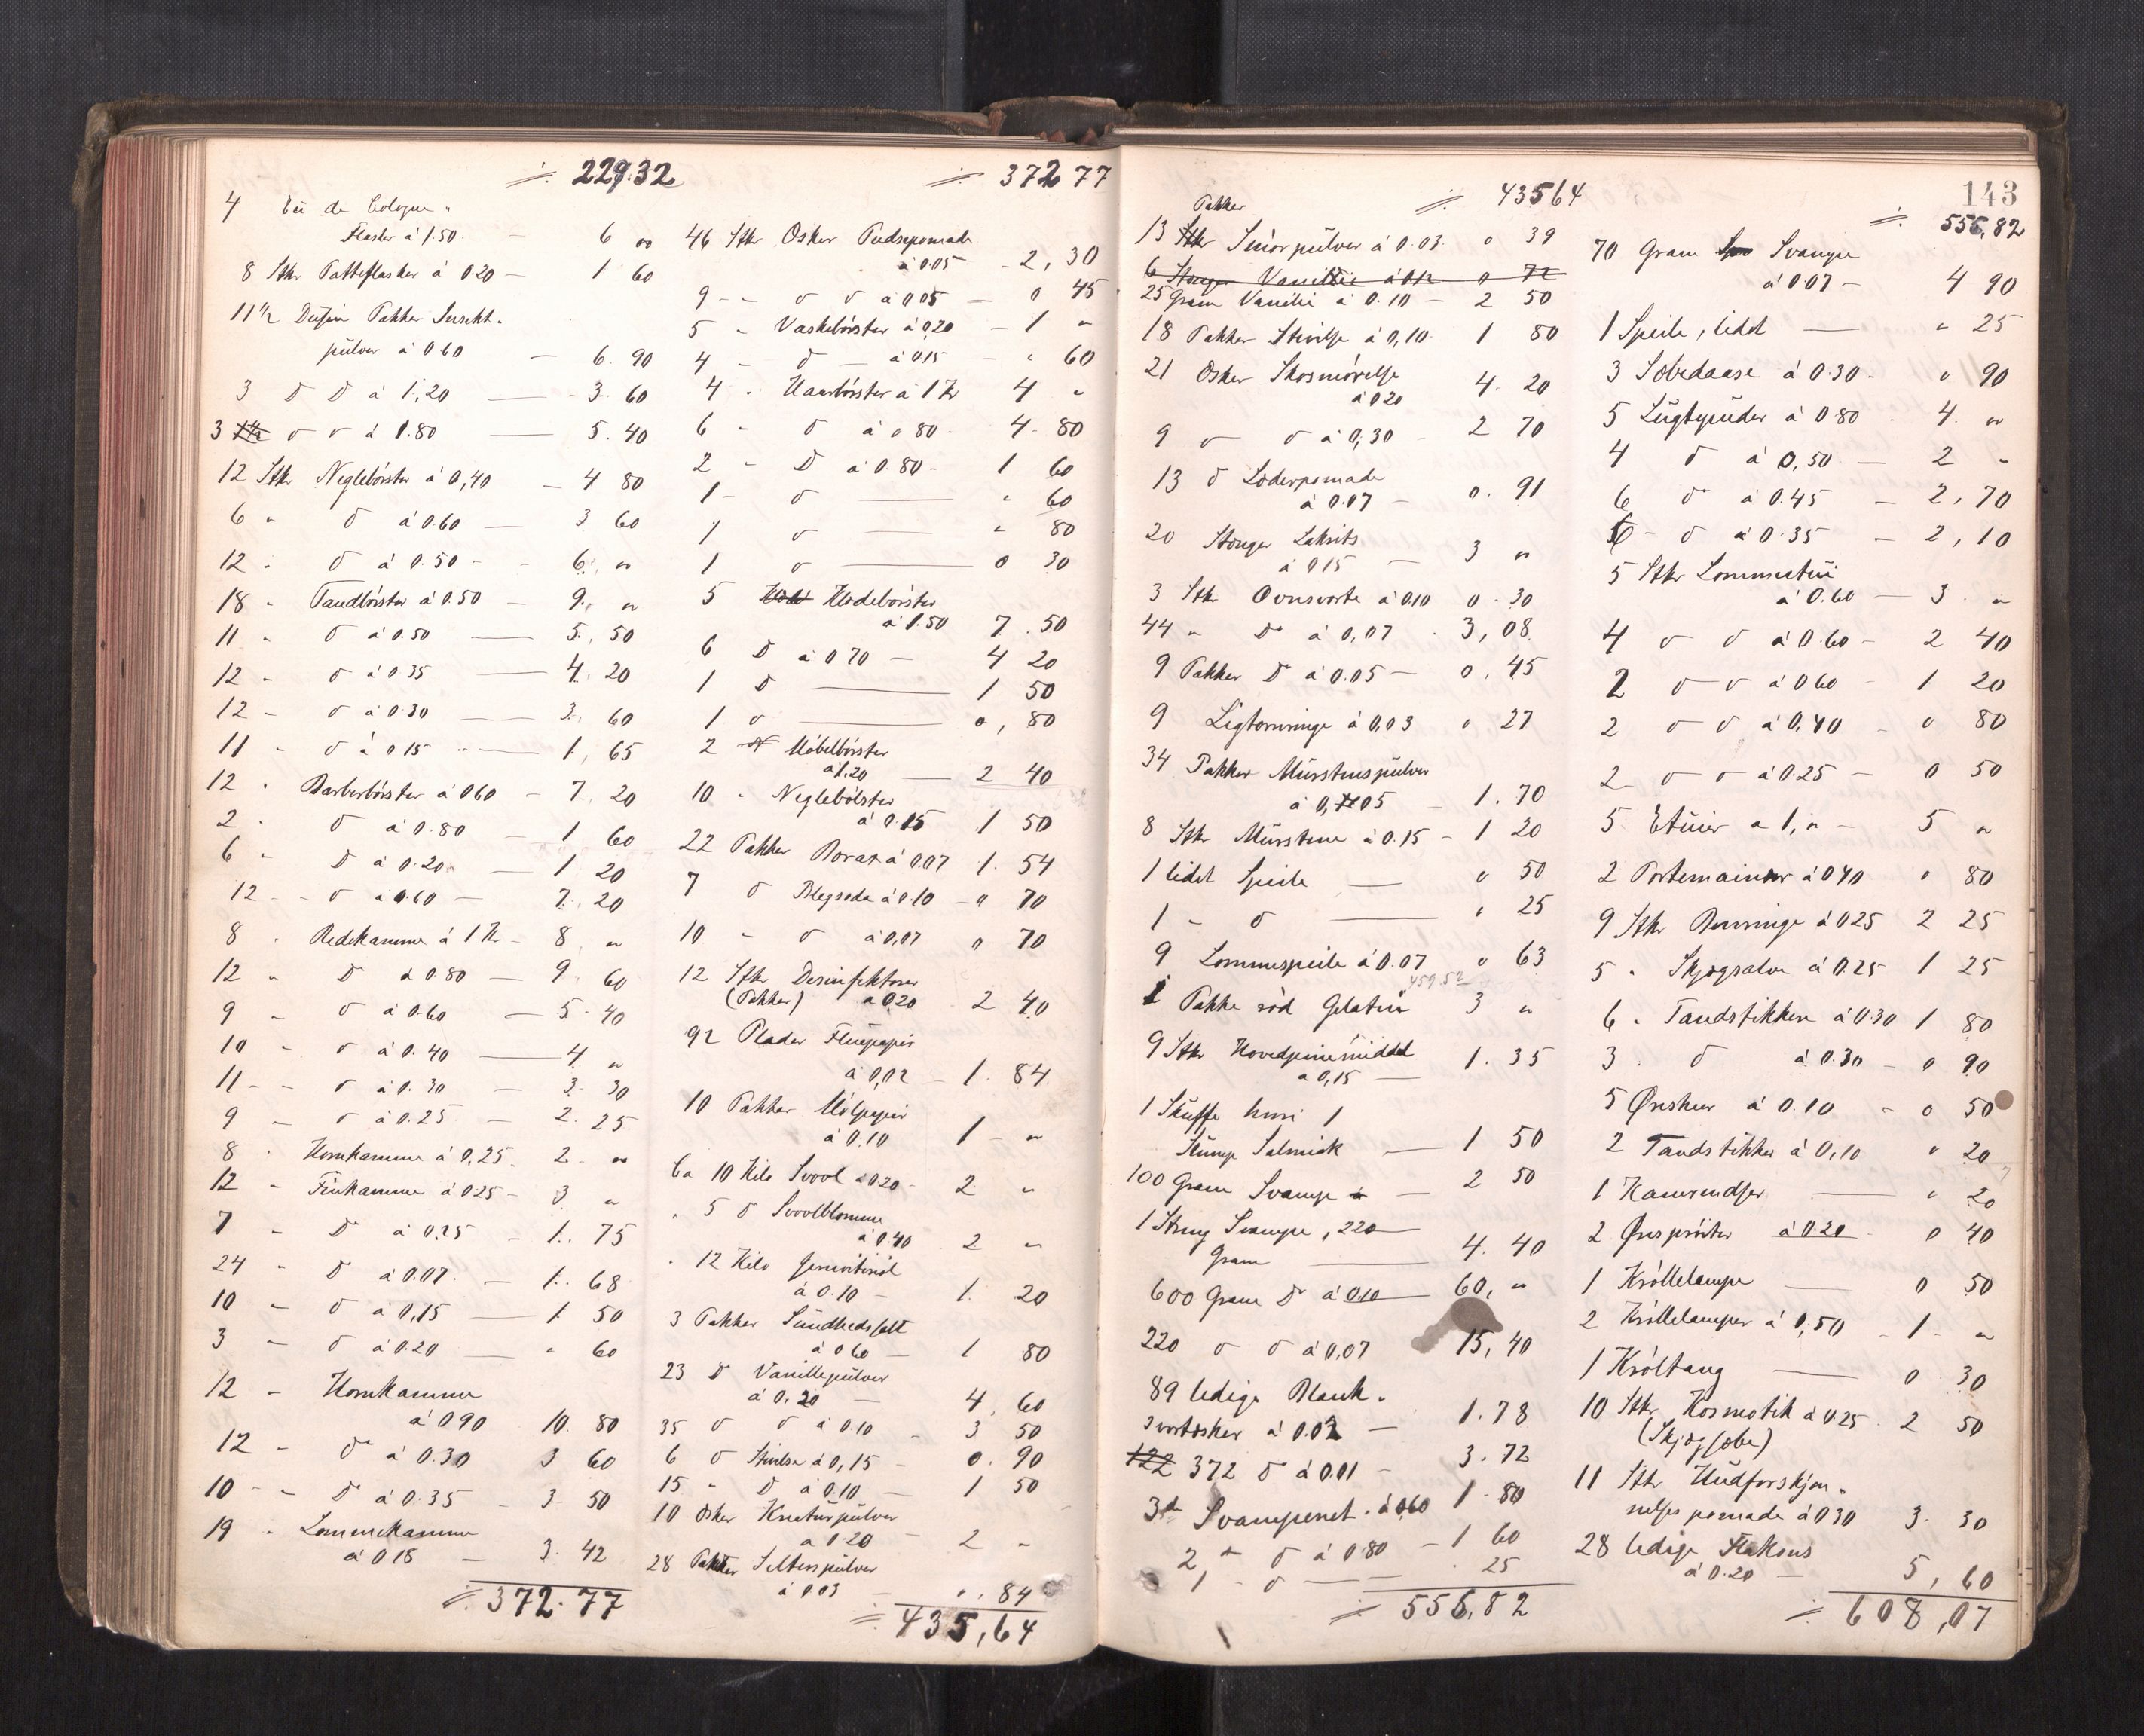 ÷ 229.32
4 Eu de Cologne
Flasker á 1.50 - 6 "
8 Stkr Patteflasker á 0.20 - 1 60
11 1/2 Dusin Pakker Insekt-
pulver á 0 60 - 6. 90
3 D D á 1,20 - 3. 60
3 D D á 1.80 - 5. 40
12 Stkr Neglebörster á 0,40 - 4 80
6 " D á 0.60 - 3 60
12 " D á 0.50 - 6, "
18 " Tandbörster á 0.50 - 9, "
11 " D á 0.50 - 5, 50
12 " D á 0 35 - 4. 20
12 " D á 0.30 - 3. 60
11 " D á 0 15 - 1, 65
12 " Barberbörster á 0 60 - 7. 20
2 " D á 0.80 - 1 60
6 " D á 0.20 - 1 20
12 " D á 0.60 - 7. 20
8 " Redekamme á 1 Kr - 8 "
12 " D á 0 80 - 9. 60
9 " D á 0.60 - 5. 40
10 " D á 0.40 - 4 "
11 " D á 0.30 - 3. 30
9 " D á 0.25 - 2. 25
8 " Hornkamme á 0,25 - 2 "
12 " Finkamme á 0 25 - 3 "
7 " D á 0,25 - 1. 75
24 " D á 0.07 - 1. 68
10 " D á 0,15 - 1 50
3 " D á 0.20 - " 60
12 " Hornkamme
á 0 90 10. 80
12 " D á 0.30 3 60
10 " D á 0.35 - 3. 50
19 " Lommekamme
á 0 18 - 3. 42
÷ 372.77
÷ 372 77
46 Stkr Æsker Pudsepomade
á 0.05 - 2, 30
9 " D D á 0 05 - 0 45
5 " Vaskebörster á 0,20 - 1 "
4 " D á 0.15 - " 60
4 " Haarbörster á 1 Kr 4 "
6 " D á 0 80 - 4. 80
2 " D á 0.80 - 1 60
1 " D - " 60
1 D - " 80
1 D - 0 30
5 Klædebörster
á 1.50 7. 50
6 D á 0 70 - 4 20
1 D - 1 50
1 D - 0, 80
2 Möbelbörster
á 1.20 - 2 40
10 " Neglebörster
á 0.15 1 50
22 Pakker Borax á 0.07 1. 54
7 D Blegsoda á 0.10 - 0 70
10 " D á 0,07 0 70
12 Stkr Desinfektorer
(Pakker) á 0,20 - 2 40
92 Plader Fluepapir
á 0,02 - 1. 84
10 Pakker Mölpapir
á 0.10 1 "
Ca 10 Kilo Svovl á 0 20 - 2 "
" 5 D Svovlblomme
á 0.40 2 "
" 12 Kilo
á 0.10 - 1. 20
3 Pakker Sundhedssalt
á 0 60 - 1 80
23 D Vanillepulver
á 0,20 - 4. 60
35 D D á 0.10 - 3 50
6 D Stivelse á 0,15 - 0. 90
15 " D á 0.10 - 1 50
10 Æsker Knaturpulver
á 0.20 - 2 "
28 Pakker Selterspulver
á 0 03 - 0. 84
÷ 435,64
÷ 435 64
Pakker
13 Smörpulver á 0.03 0 39
6 Stænger Vanillie á 0.12 0 72
25 Gram Vanille á 0.10 - 2 50
18 Pakker Stivelse á 0,10 1 80
21 Æsker Skosmörelse
á 0 20 4. 20
9 D D á 0,30 - 2 70
13 D Læderpomade
á 0.07 - 0. 91
20 Stænger Lakrits
á 0 15 - 3 "
3 Stk Ovnsværte á 0.10 0. 30
44 " D á 0,07 3, 08
9 Pakker D á 0.05 - 0. 45
9 Ligtornringe á 0,03 0 27
34 Pakker Mürstenspulver
á 0,05 - 1. 70
8 Stk Mürstene á 0.15 - 1 20
1 lidet Speile - 0 50
1 " D - " 25
9 Lommespeile á 0.07 0 63
459.52
1 Pakke röd Gelatin 3 "
9 Stkr Hovedpinemiddel 1. 35
á 0,15 -
1 Skuffe hvori 1
Klump Salmiak - 1 50
100 Gram Svampe - 2 50
1 Streng Svampe, 220
Gram - 4. 40
600 Gram D á 0.10 60, "
220 D D á 0,07 15, 40
89 ledige Blank-
sværtæsker á 0.02 - 1. 78
122 372 D á 0.01 - 3. 72
3 Svampenet á 0,60 1. 80
2 " D á 0.80 - 1 60
1 " D - 25
÷ 556,82
143
÷ 556,82
70 Gram Svampe
á 0 07 - 4 90
1 Speile, lidet - " 25
3 Sæbedaase á 0.30 - 0 90
5 Lugtepuder á 0 80 - 4 "
4 D á 0,50 - 2 "
6 D á 0.45 - 2, 70
6 - D á 0.35 - 2, 10
5 Stkr Lommeetui
á 0.60 - 3 "
4 D D á 0.60 - 2 40
2 D D á 0 60 - 1 20
2 D D á 0,40 - 0 80
2 D D á 0.25 - 0 50
5 Etuier á 1, " - 5 "
2 Portemainær á 0 40 0 80
9 Stkr Benringe á 0 25 2 25
5 " Skjægsalve á 0.25 1 25
6 " Tandstikkere á 0.30 1 80
3 " D á 0.30 - 0 90
5 Øreskeer á 0.10 - 0 50
2 Tandstikker á 0,10 0 20
1 Kamrendser - " 20
2 Øresprøiter á 0.20 0 40
1 Krøllelampe - 0 50
2 Krøllelamper á 0,50 - 1 "
1 Krøltang - 0 30
10 Stkr Kosmetik á 0.25 2 50
(Skjægsæbe)
11 Stkr Hudforskjøn-
nelses pomade á 0 30 3. 30
28 ledige Flakons
á 0.20 - 5, 60
÷ 608,07